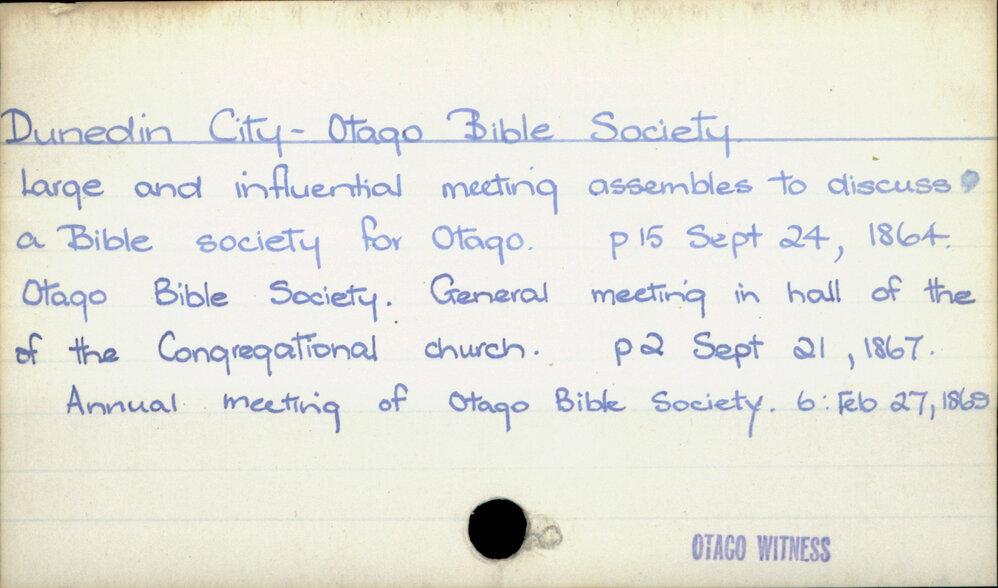 Dunedin City - Otago Bible Society
Large and influential meeting assembles to discuss
a Bible society for Otago. p 15 Sept 24, 1864.
Otago Bible Society. General meeting in hall of the
of the Congregational church. p 2 Sept 21, 1867.
Annual meeting of Otago Bible Society. 6: Feb 27, 1869
OTAGO WITNESS